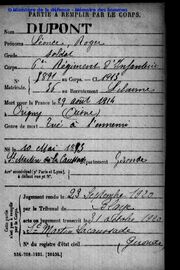 © Ministère de la défense - Mémoire des hommes
PARTIE À REMPLIR PAR LE CORPS.
DUPONT
Prénoms Roger
Grade soldat
Corps 6e Régiment d'Infanterie
N° 8891 au Corps. — Cl. 1913
Matricule. 56 au Recrutement Libourne
Mort pour la France le 29 août 1914
à Origny (Aisne)
Genre de mort Tué à l'ennemi
Né le 10 mai 1893
à Gironde
Arr municipal (pr Paris et Lyon),
à défaut rue et N°.
Jugement rendu le 23 Septembre 1920
par le Tribunal de
acte ou jugement transcrit le 31 octobre 1920
à St Martin
N° du registre d'état civil Gironde